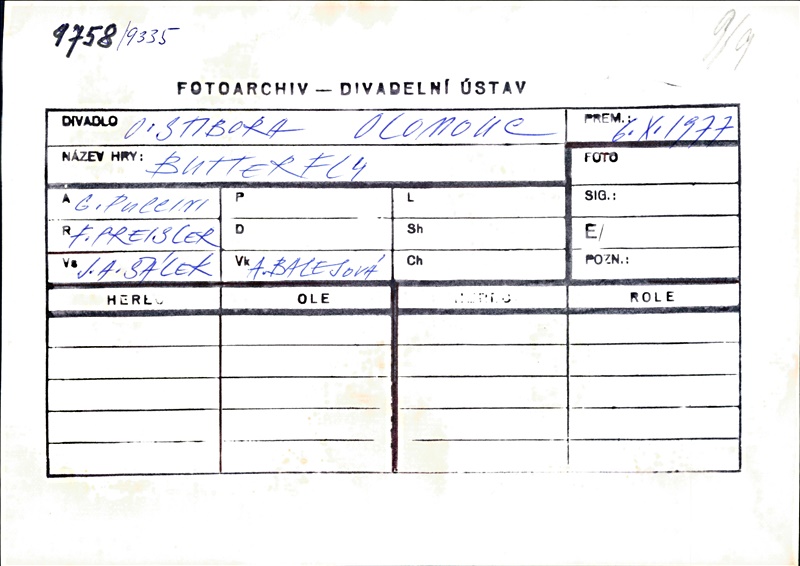 9758/9335
9/9
FOTOARCHIV — DIVADELNÍ ÚSTAV
DIVADLO O. STIBORA OLOMOUC
PREM.: 6. X. 1977
NÁZEV HRY: BUTTERFLY
FOTO
A G. PUCCINI
P
L
SIG.:
R F. PREISLER
D
Sh
E/
Vs J. A. ŠÁLEK
Vk A. BALEJOVÁ
Ch
POZN.:
HEREC OLE ROLE